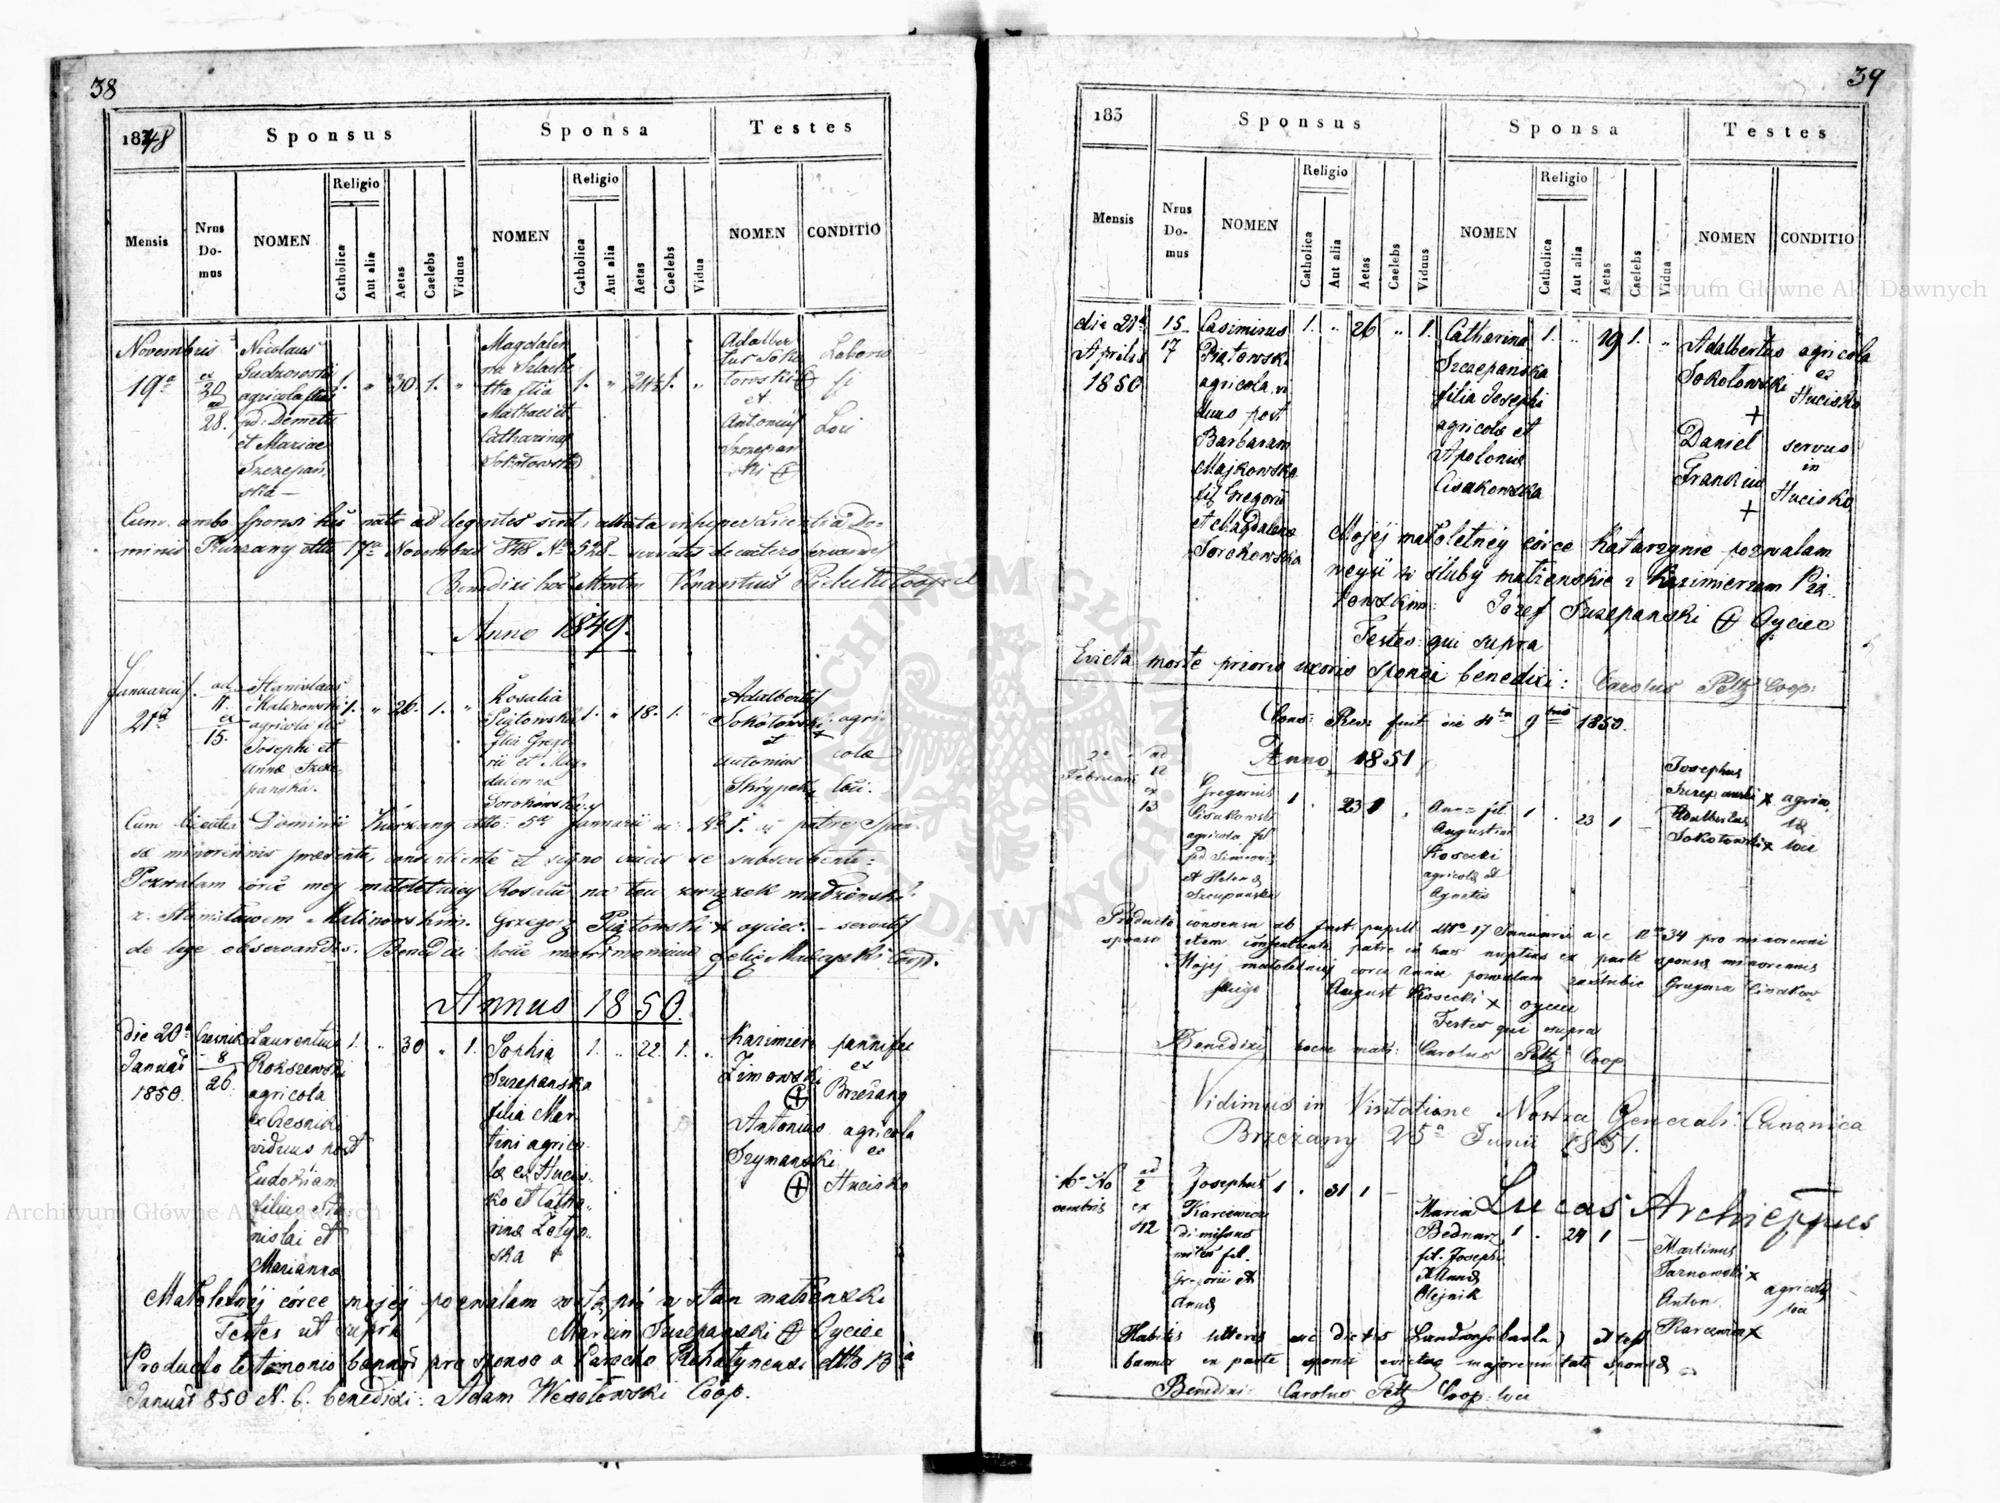 38
1848
Sponsus
Sponsa
Testes
Mensis
Nrus Do-
mus
NOMEN
Religio
Catholica
Aut alia
Aetas
Caelebs
Viduus
NOMEN
Religio
Catholica
Aut alia
Aetas
Caelebs
Vidua
NOMEN
CONDITIO
Novembris
19a
ex
20
ad
28.
Nicolaus
agricola
pd: Demetri
et Mariae
Szczepań
ska
1. " 30. 1. "
Magdale
na Szlache
tka filia
Mathaei et
Catharinae
Sokołowska
1. " 24½ 1. "
Adalber
tus Soko
łowski
et
Antonius
Szczepan
ski
Laborio
si
Loci
Cum ambo Sponsi hic nati ac degentes sint, allata insuper licentia Do-
minii Kurzany dtto 17a Novembris 848 No 528 servatis de caetero servandis
Benedixi hoc Venantius Coop.
Anno 1849.
Januarii
21a
ad
11.
ex
15.
Stanislaus
Malinowski
agricola fil
Josephi et
Anna Szcze
panska.
1. " 26. 1. "
Rosalia
Piątowska
filia Grego
rii et Mag-
dalenna
Sorokowska
1. " 18. 1. "
Adalbertus
Sokołowski
et
Antonius
Skrypek
agri-
colae
loci.
Cum licentia Dominii Kurzany dtto: 5a Januarii ac: No 1. et patre Spon
sae minorennis praesente, consentiente et signo crucis se subscribente:
Pozwalam córce mej małoletniej Rosalii na ten związek małżeński
z Stanisławem Malinowskim. Grzegorz Piątowski x oyciec. - servatis
de lege observandis. Benedixi hocce matrimonium Felix Coop.
Annus 1850.
die 20a
Januar
1850.
8
26
Laurentius
Rokszewski
agricola
viduus post
Eudoxiam
filius Sta
nislai et
Marianna
1. " 30 " 1.
Sophia
Szczepanska
filia Mar
tini agrico-
lae ex Hucis-
ko et Catha-
rina
ska
1. " 22. 1. "
Kazimierz
Zimowski
Antonius
Szymanski
pannifex
ex
Brzeżany
agricola
ex
Hucisko
Małoletniéj córce mojéj pozwalam wstąpić w stan małżeński
Testes ut supra Marcin Szczepanski Oyciec
Producto testimonio bannor pro sponso a Parocho Rohatynensi dtto 13a
Januar 850 N. 6. benedixi: Adam Wesołowski Coop.
39
183
Sponsus
Sponsa
Testes
Mensis
Nrus
Do-
mus
NOMEN
Religio
Catholica
Aut alia
Aetas
Caelebs
Viduus
NOMEN
Religio
Catholica
Aut alia
Aetas
Caelebs
Vidua
NOMEN
CONDITIO
die 21a
Aprilis
1850
15
17
Casimirus
Piątowski
agricola vi
duus post
Barbaram
Majkowska
fil Gregorii
et Magdalena
Sorokowska
1. " 26 " 1.
Catharina
Szczepanska
filia Josephi
agricola et
Apolonia
Cisakowska
1. " 19 1. "
Adalbertus
Sokołowski
+
Daniel
+
agricola
ex
Hucisko
servus
in
Hucisko
Mojéj małoletniéj córce Katarzynie pozwalam
wejść w śluby małżenskie z Kazimierzem Pią
towskim: Józef Szczepanski Oyciec
Testes qui supra
Evicta morte prioris uxoris sponsi benedixi: Carolus Peltz Coop:
fuit die 4ta 9bris 1850.
Anno 1851
Februarii
ad
12
ex
13
Gregorius
Cisakowski
agricola fil
pd Simeonis
et Helena
Szczepanska
1 " 23 1 "
Anna fil
Augustini
Kosecki
agricola et
Agnetis
1 " 23 1
Josephus
Szczepanski x
Adalbertus
Sokołowski x
agrico
la
loci
Producto consensu ab pupill dtto 17 Januarii a c No 34 pro minorenni
sponso item consentiente patre in has nuptias ex parte sponsa minorennis
Mojej małoletniej corce Annie pozwalam zaślubić Grzegorza Cisakow
skiego August Kosecki x oyciec
Testes qui supra
Benedixi hocce matr: Carolus Peltz Coop
Vidimus in Visitatione Nostra Generali Canonica
Brzezany 25a Junii 1851.
Lucas Archieppus
16a No
vembris
ad
2
ex
42
Josephus
Karczewicz
dimissus
miles fil.
Gregorii et
Anna
1 " 31 1
Maria
Bednarz
fil. Josephi
et Anna
Olejnik
1 " 24 1
Martinus
Tarnowski x
Anton
x
agricola
loci
Habitis litteris
bannis ex parte sponsi evictaq majorennitate sponsa
Benedixi: Carolus Peltz Coop: loci
Archiwum Główne Akt Dawnych
Archiwum Główne Akt Dawnych
ARCHIWUM GŁÓWNE AKT DAWNYCH